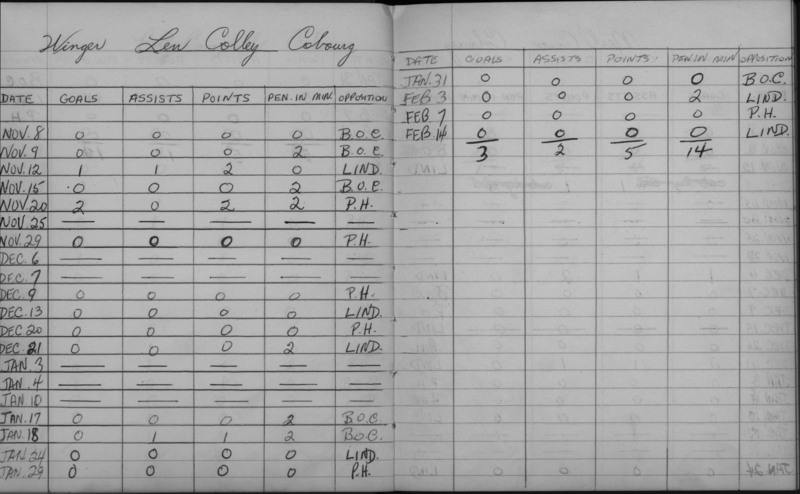 Winger Len Colley Cobourg
DATE GOALS ASSISTS POINTS PEN. IN MIN. OPPOSITION
NOV. 8 0 0 0 0 B.O.C.
NOV. 9 0 0 0 2 B.O.C.
NOV. 12 1 1 2 0 LIND.
NOV. 15 0 0 0 2 B.O.C.
NOV. 20 2 0 2 2 P.H.
NOV. 25 — — — — —
NOV. 29 0 0 0 0 P.H.
DEC. 6 — — — — —
DEC. 7 — — — — —
DEC. 9 0 0 0 0 P.H.
DEC. 13 0 0 0 0 LIND.
DEC. 20 0 0 0 0 P.H.
DEC. 21 0 0 0 2 LIND.
JAN. 3 — — — — —
JAN. 4 — — — — —
JAN. 10 — — — — —
JAN. 17 0 0 0 2 B.O.C.
JAN. 18 0 1 1 2 B.O.C.
JAN. 24 0 0 0 0 LIND.
JAN. 29 0 0 0 0 P.H.
DATE GOALS ASSISTS POINTS PEN. IN MIN OPPOSITION
JAN. 31 0 0 0 0 B.O.C.
FEB 3 0 0 0 2 LIND.
FEB 7 0 0 0 0 P.H.
FEB. 14 0 0 0 0 LIND.
3 2 5 14